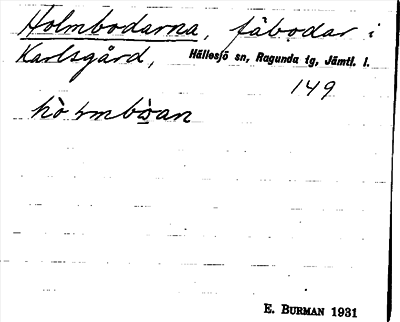 Holmbodarna, fäbodar i
Karlsgård, Hällesjö sn, Ragunda tg, Jämtl. l.
149
E. BURMAN 1931